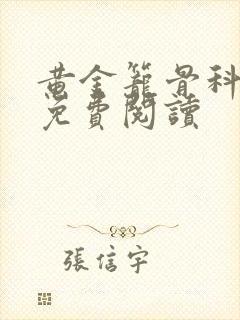 黄金籠骨科
免費閱讀
張信宇